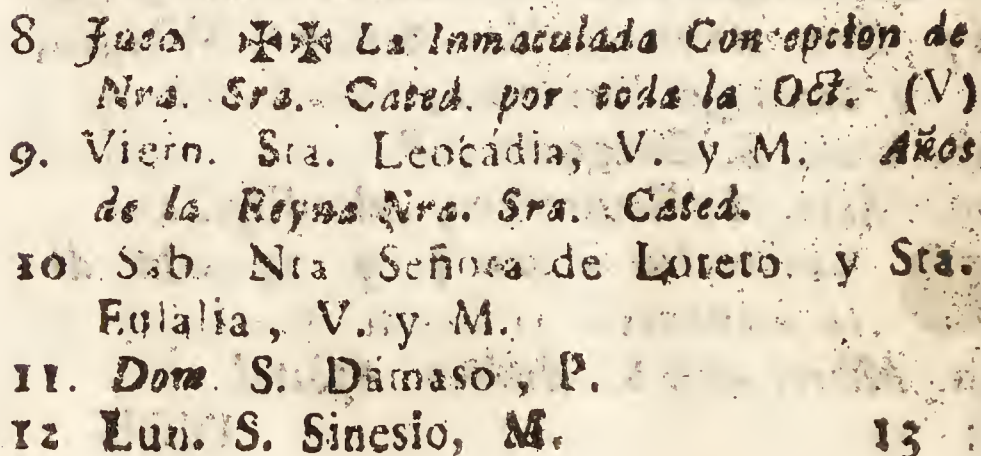 8. Juev. ✠✠ La Inmaculada Concepcion de
Nra. Sra. Cated. por toda la Oct. (V)
9. Viern. Sta. Leocádia, V. y M. Años
de la Reyna Nra. Sra. Cated.
10 Sab. Nra Señora de Loreto. y Sta.
Eulalia, V. y M.
11. Dom. S. Dámaso, P.
12 Lun. S. Sinesio, M. 13